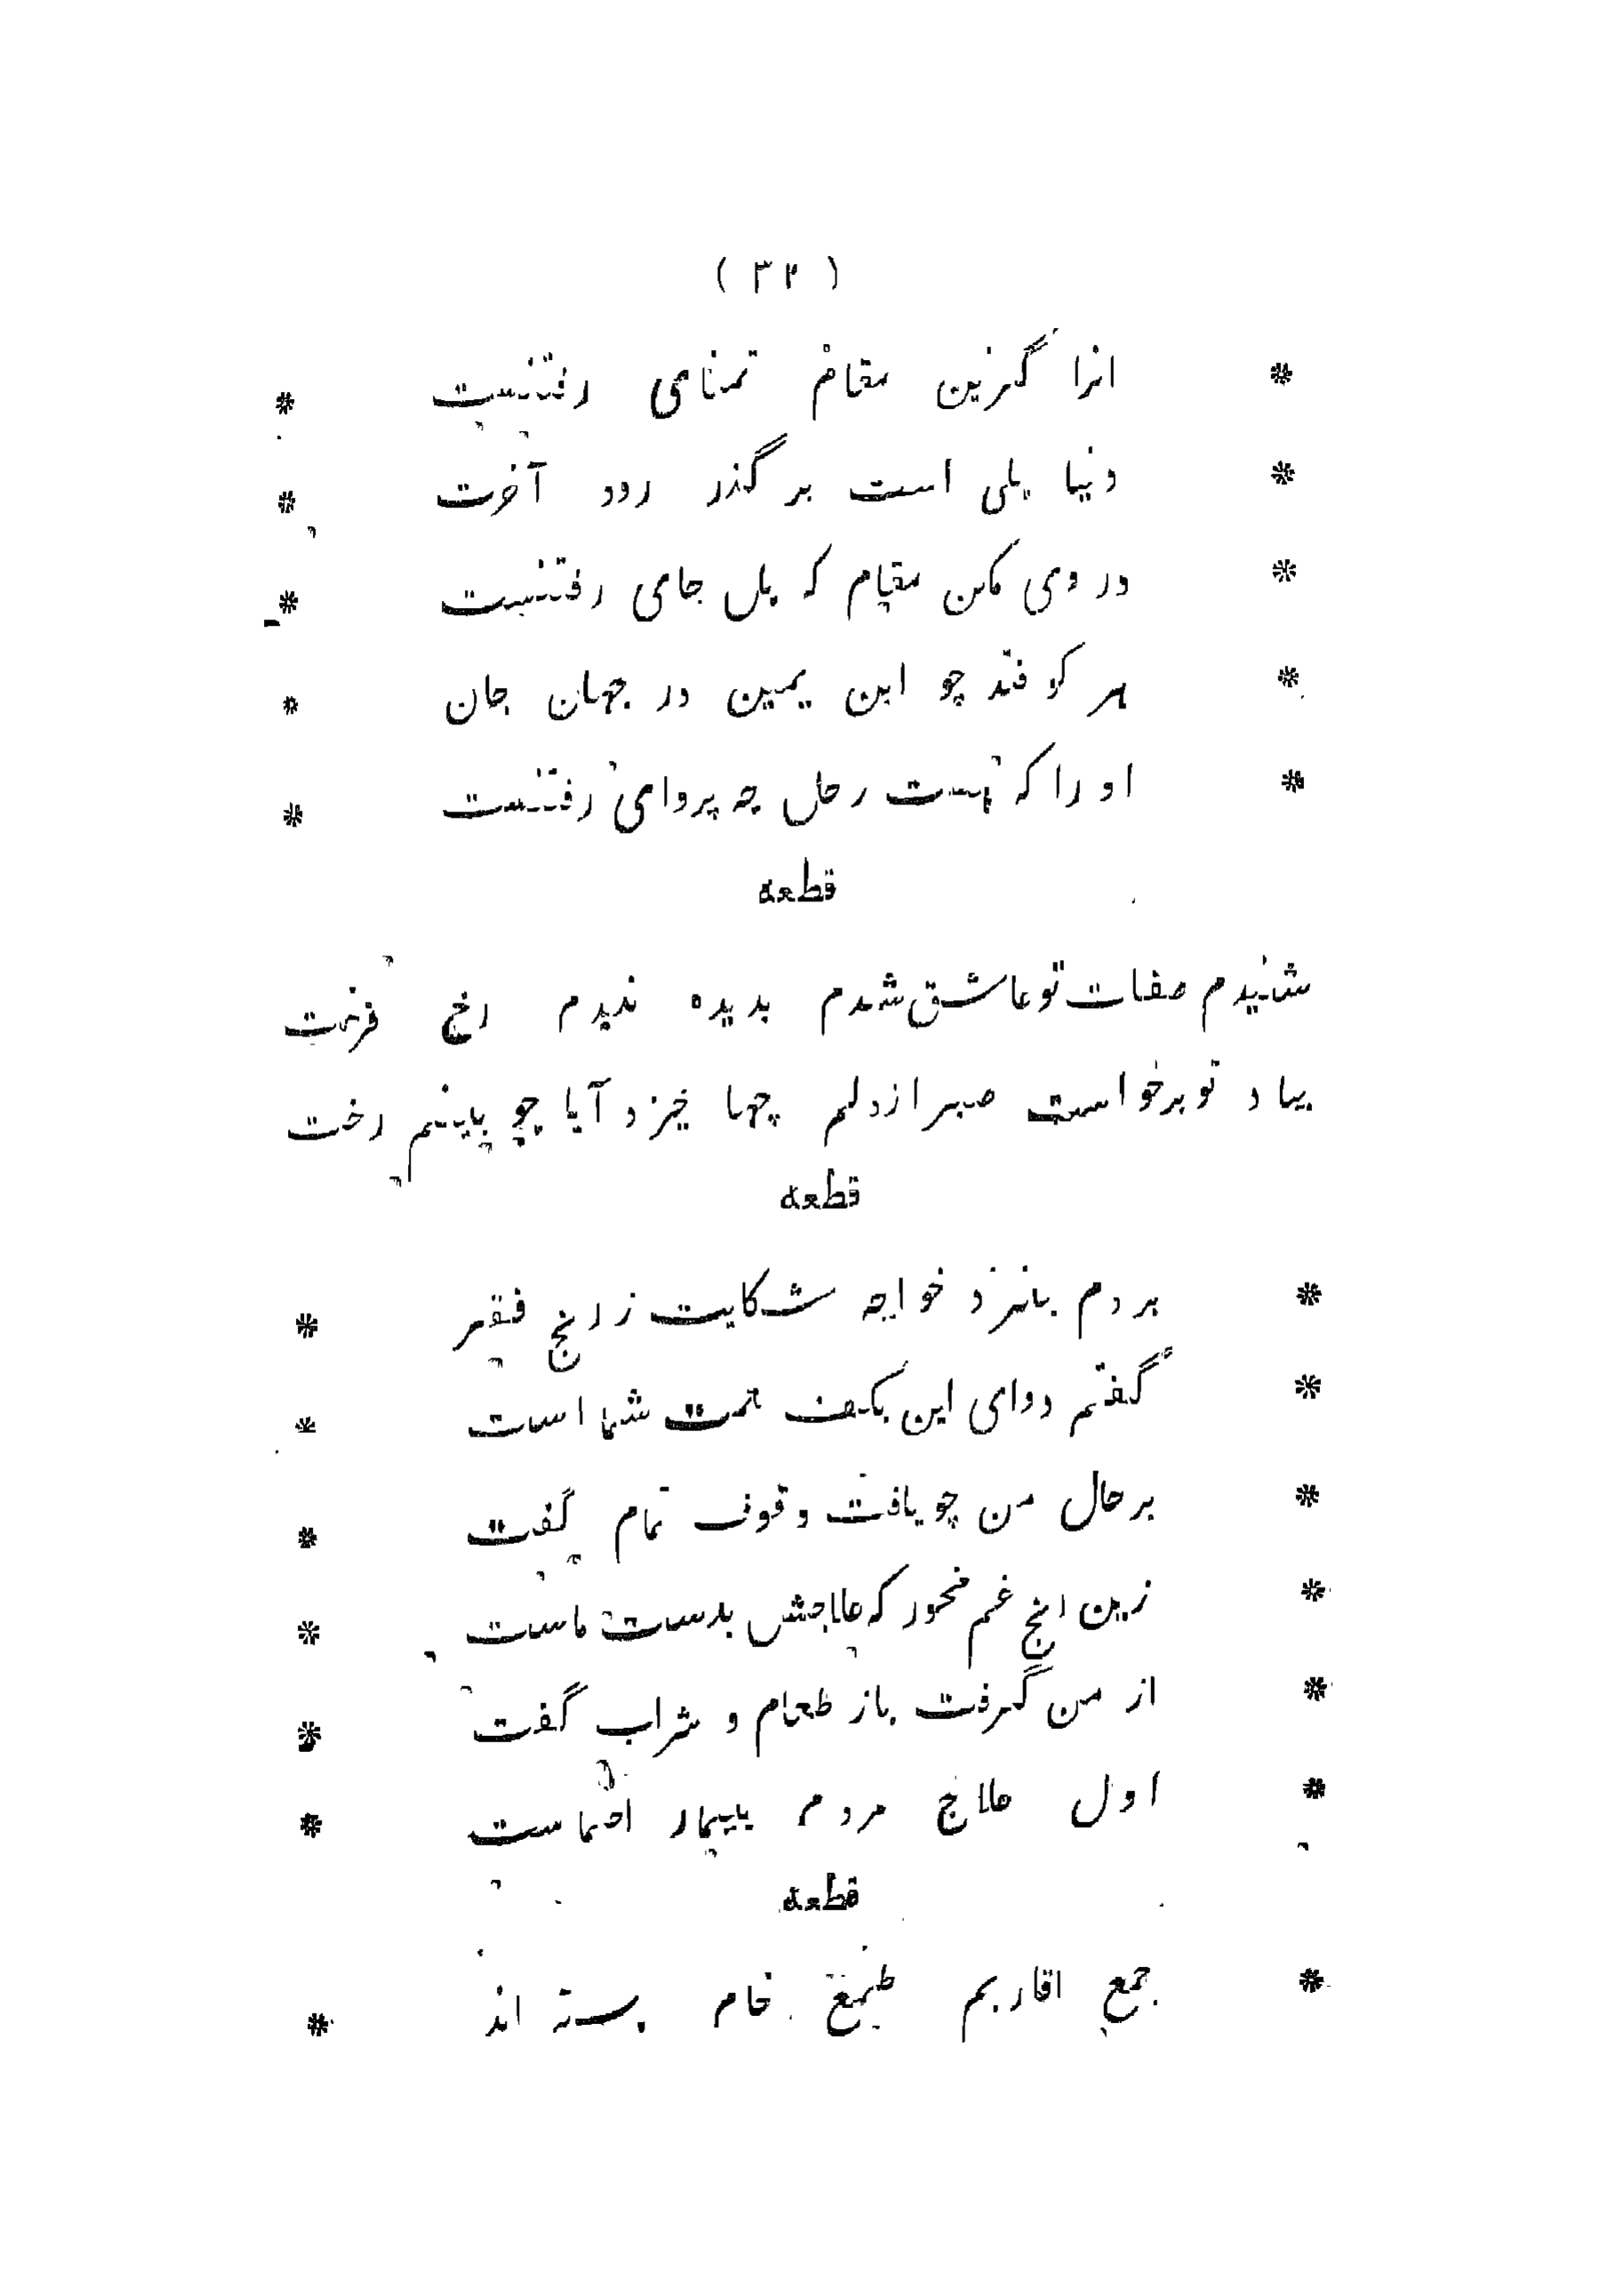 ( ۳۲ )
* انرا گزین مقام تمنای رفتنیست *
* دنیا پلی است بر گذر رود آخرت *
* در وی مکن مقام که پل جای رفتنیست *
* هر کو فتد چو ابن یمین در جهان جان *
* او را که هست رحل چه پروای رفتنست *
قطعه
شنیدم صفات تو عاشق شدم بدیده ندیدم رخ فرخت
بیاد تو برخواست صبر از دلم چها خیزد آیا چو ببینم رخت
قطعه
* بردم بنزد خواجه شکایت ز رنج فقر *
* گفتم دوای این بکف همت شما است *
* بر حال من چو یافت وقوف تمام گفت *
* زین رنج غم مخور که علاجش بدست ماست *
* از من گرفت باز طعام و شراب گفت *
* اول علاج مردم بیمار احتماست *
قطعه
* جمع اقاربم طمع خام بسته اند *